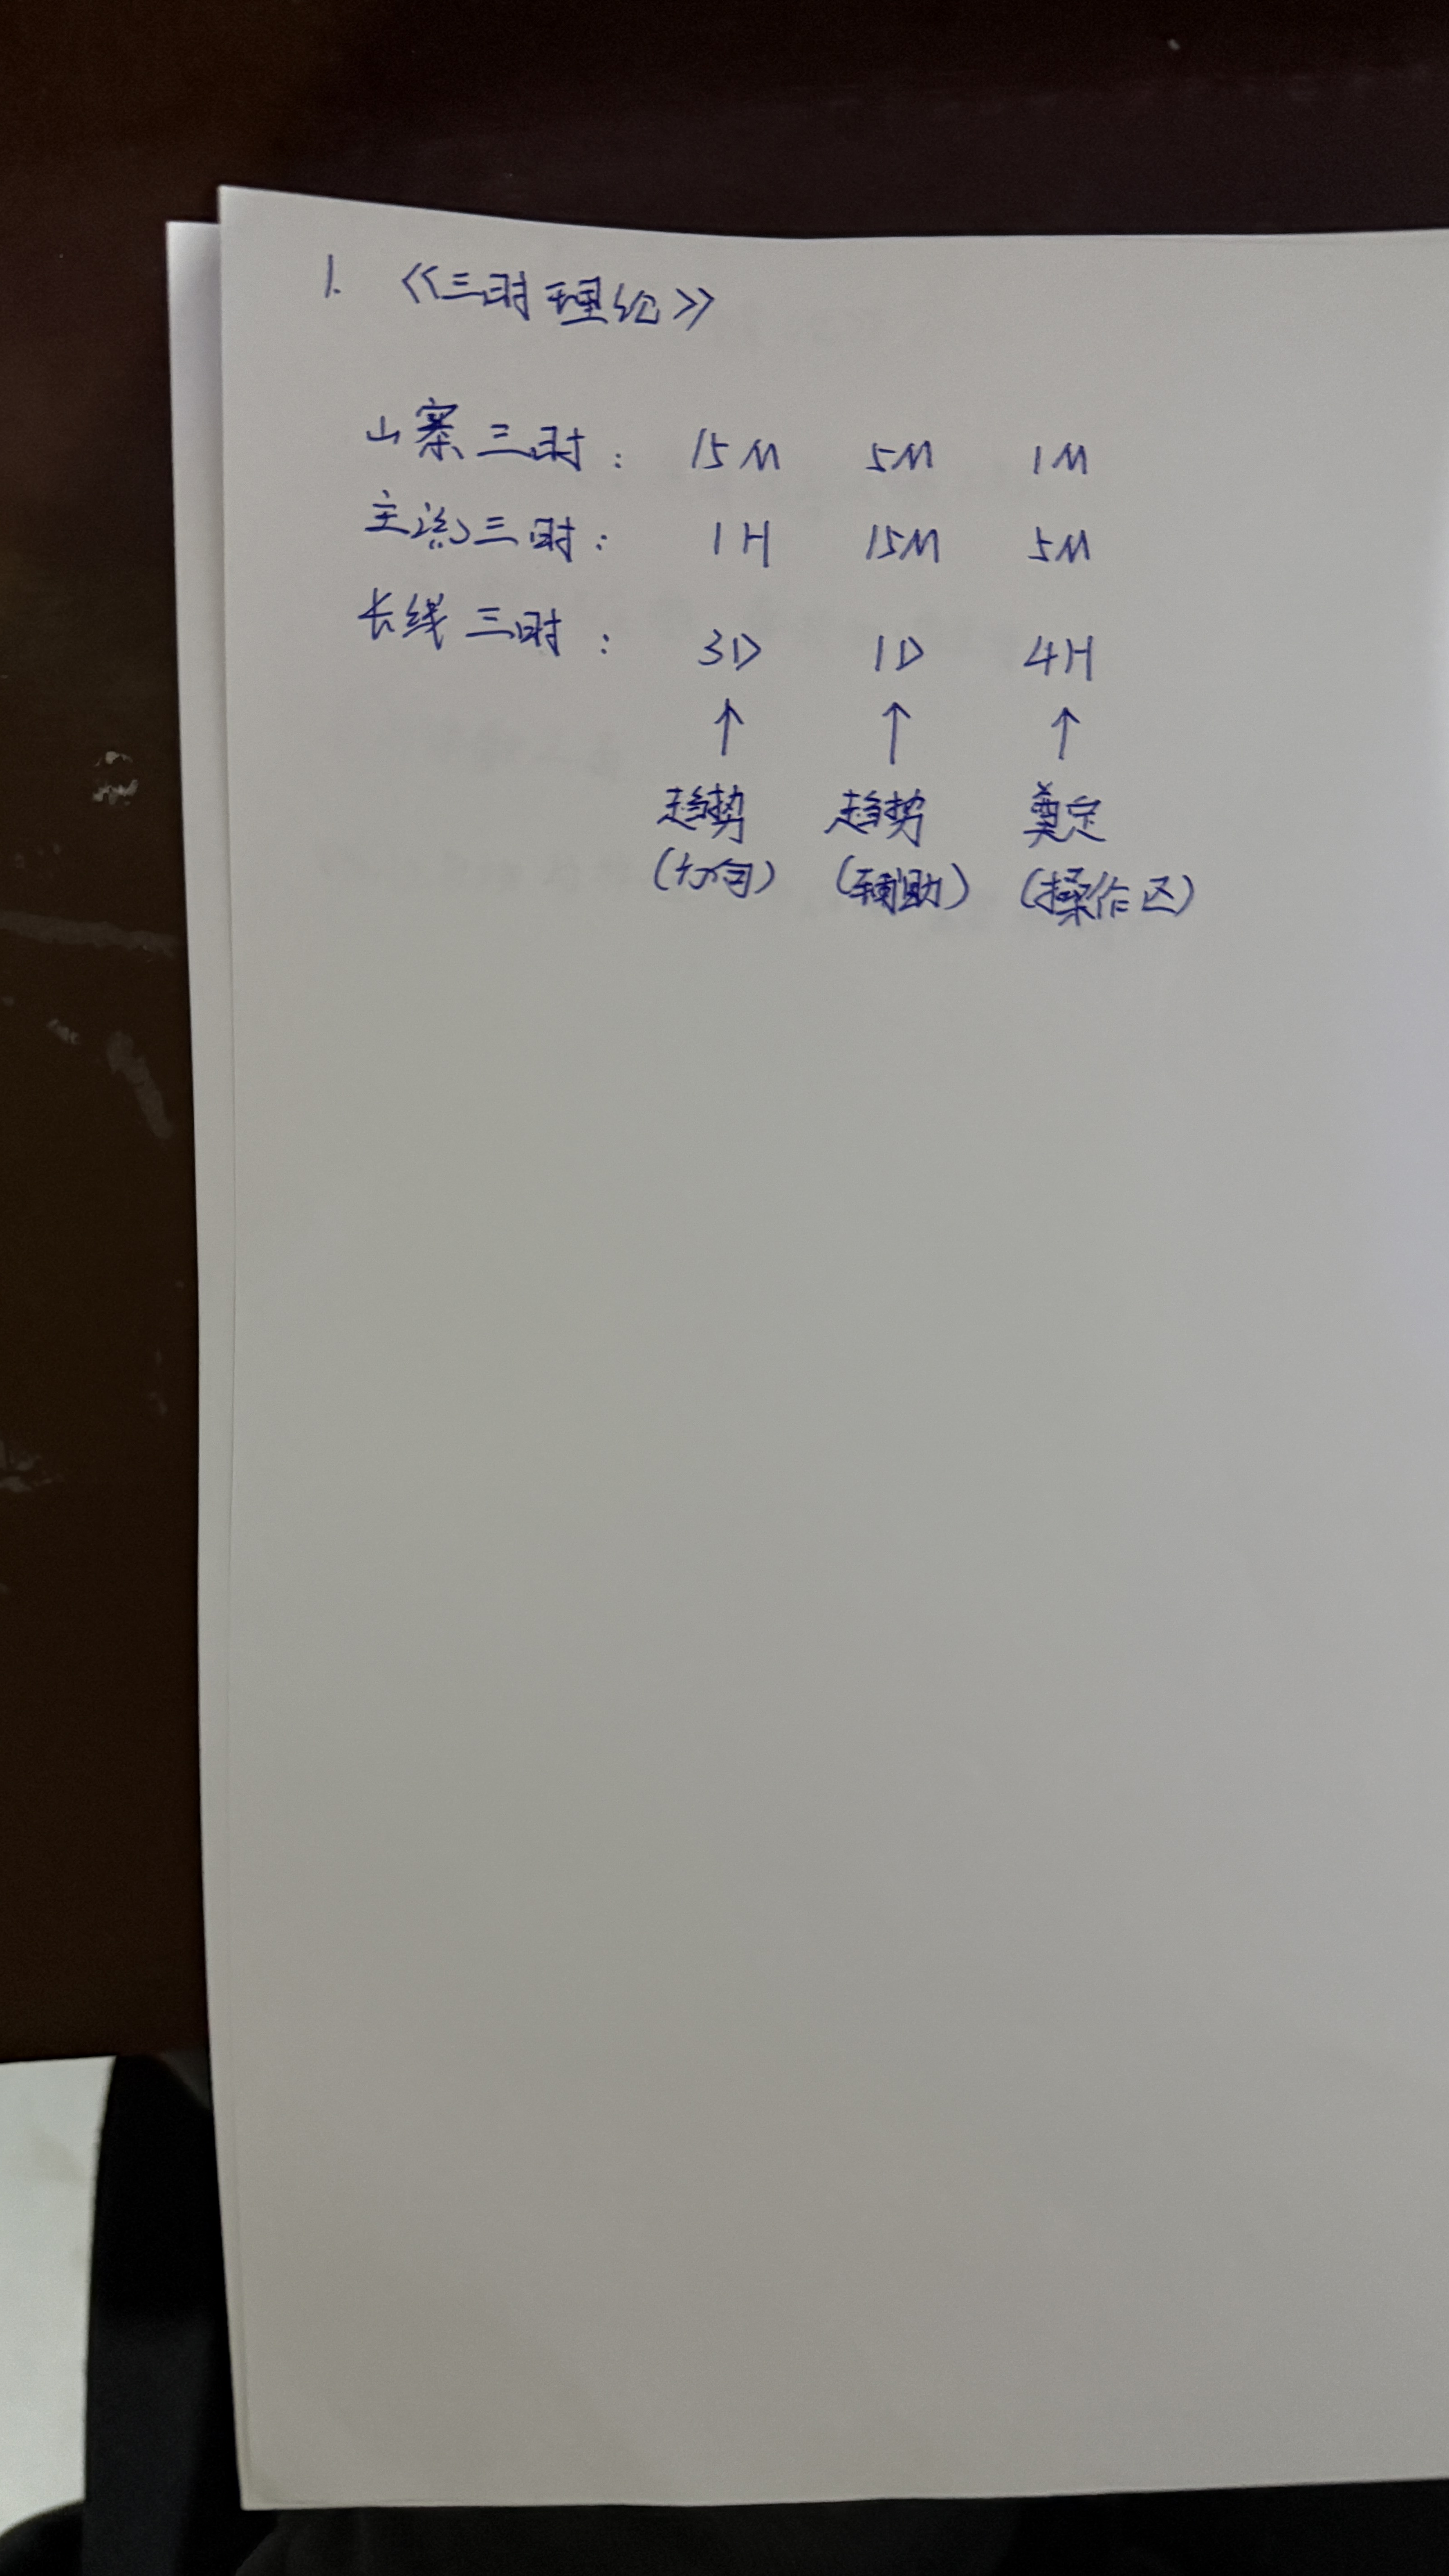 1. 《三时理论》
山寨三时： 15M 5M 1M
主流三时： 1H 15M 5M
长线三时： 3D 1D 4H
↑ ↑ ↑
趋势 趋势 奠定
(方向) (辅助) (操作区)